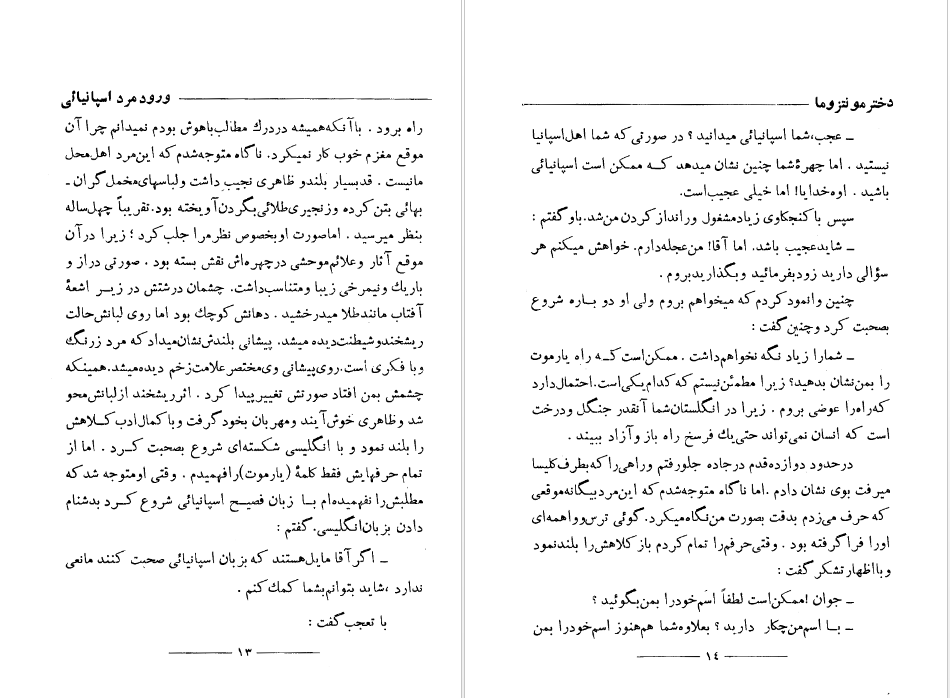 ورود مرد اسپانیائی
راه برود . با آنکه همیشه در درك مطالب باهوش بودم نمیدانم چرا آن
موقع مغزم خوب کار نمیکرد. ناگاه متوجه شدم که این مرد اهل محل
ما نیست . قد بسیار بلند و ظاهری نجیب داشت و لباسهای مخمل گران ـ
بهائی بتن کرده و زنجیری طلائی بگردن آویخته بود. تقریباً چهل ساله
بنظر میرسید . اما صورت او بخصوص نظر مرا جلب کرد ؛ زیرا در آن
موقع آثار و علائم موحشی در چهره‌اش نقش بسته بود . صورتی دراز و
باریك و نیمرخی زیبا و متناسب داشت. چشمان درشتش در زیر اشعهٔ
آفتاب مانند طلا میدرخشید . دهانش کوچك بود اما روی لبانش حالت
ریشخند و شیطنت دیده میشد. پیشانی بلندش نشان میداد که مرد زرنگ
و با فکری است. روی پیشانی وی مختصر علامت زخم دیده میشد. همینکه
چشمش بمن افتاد صورتش تغییر پیدا کرد . اثر ریشخند از لبانش محو
شد و ظاهری خوش آیند و مهربان بخود گرفت و با کمال ادب کلاهش
را بلند نمود و با انگلیسی شکسته‌ای شروع بصحبت کرد . اما از
تمام حرفهایش فقط کلمهٔ (یارموت) را فهمیدم . وقتی او متوجه شد که
مطلبش را نفهمیده‌ام با زبان فصیح اسپانیائی شروع کرد بدشنام
دادن بزبان انگلیسی. گفتم :
ـ اگر آقا مایل هستند که بزبان اسپانیائی صحبت کنند مانعی
ندارد ، شاید بتوانم بشما کمك کنم .
با تعجب گفت :
۱۳
دختر مونتزوما
ـ عجب، شما اسپانیائی میدانید ؟ در صورتی که شما اهل اسپانیا
نیستید . اما چهرهٔ شما چنین نشان میدهد که ممکن است اسپانیائی
باشید . اوه خدایا! اما خیلی عجیب است.
سپس با کنجکاوی زیاد مشغول ورانداز کردن من شد. باو گفتم :
ـ شاید عجیب باشد. اما آقا! من عجله دارم. خواهش میکنم هر
سؤالی دارید زود بفرمائید و بگذارید بروم .
چنین وانمود کردم که میخواهم بروم ولی او دو باره شروع
بصحبت کرد و چنین گفت :
ـ شما را زیاد نگه نخواهم داشت . ممکن است که راه یارموت
را بمن نشان بدهید؟ زیرا مطمئن نیستم که کدام یکی است. احتمال دارد
که راه را عوضی بروم . زیرا در انگلستان شما آنقدر جنگل و درخت
است که انسان نمی‌تواند حتی یك فرسخ راه باز و آزاد ببیند .
در حدود دوازده قدم در جاده جلو رفتم و راهی را که بطرف کلیسا
میرفت بوی نشان دادم . اما ناگاه متوجه شدم که این مرد بیگانه موقعی
که حرف می‌زدم بدقت بصورت من نگاه میکرد. گوئی ترس و واهمه‌ای
او را فرا گرفته بود . وقتی حرفم را تمام کردم باز کلاهش را بلند نمود
و با اظهار تشکر گفت :
ـ جوان ! ممکن است لطفاً اسم خود را بمن بگوئید ؟
ـ با اسم من چکار دارید ؟ بعلاوه شما هم هنوز اسم خود را بمن
۱٤